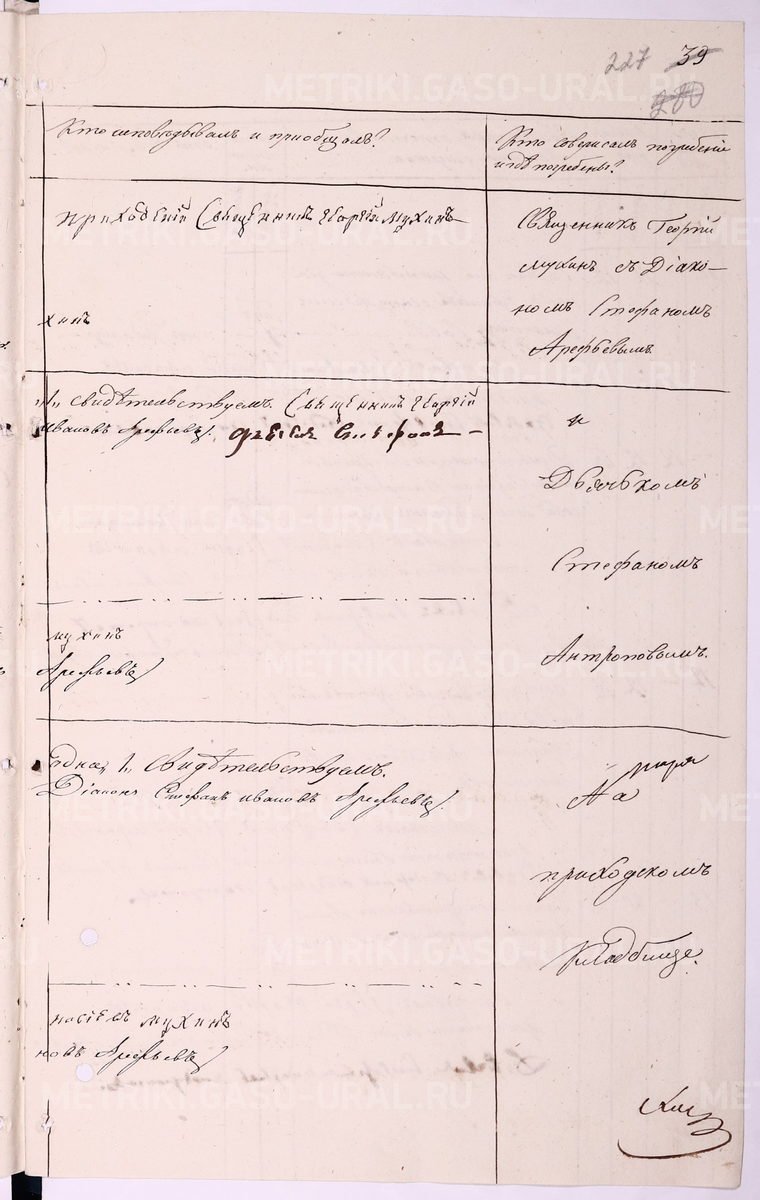 227 39
280
Кто исповѣдывалъ и приобщалъ?
Кто совершалъ погребенiе
и гдѣ погребены?
приходскiй Священникъ Георгiй Мухинъ
хинъ
Священникъ Георгiй
Мухинъ съ Дiако-
номъ Стефаномъ
Арефьевымъ
1, свидѣтельствуемъ. Священникъ Георгiй
Ивановъ Арефьевъ.
мухинъ
Арефьевъ
и
Дьячькомъ
Стефаномъ
Антроповымъ.
една, 1, Свидѣтельствуемъ.
Дiаконъ Стефанъ Ивановъ Арефьевъ.
мухинъ
новъ Арефьевъ
На
приходскомъ
Кладбище.
METRIKI.GASO-URAL.RU